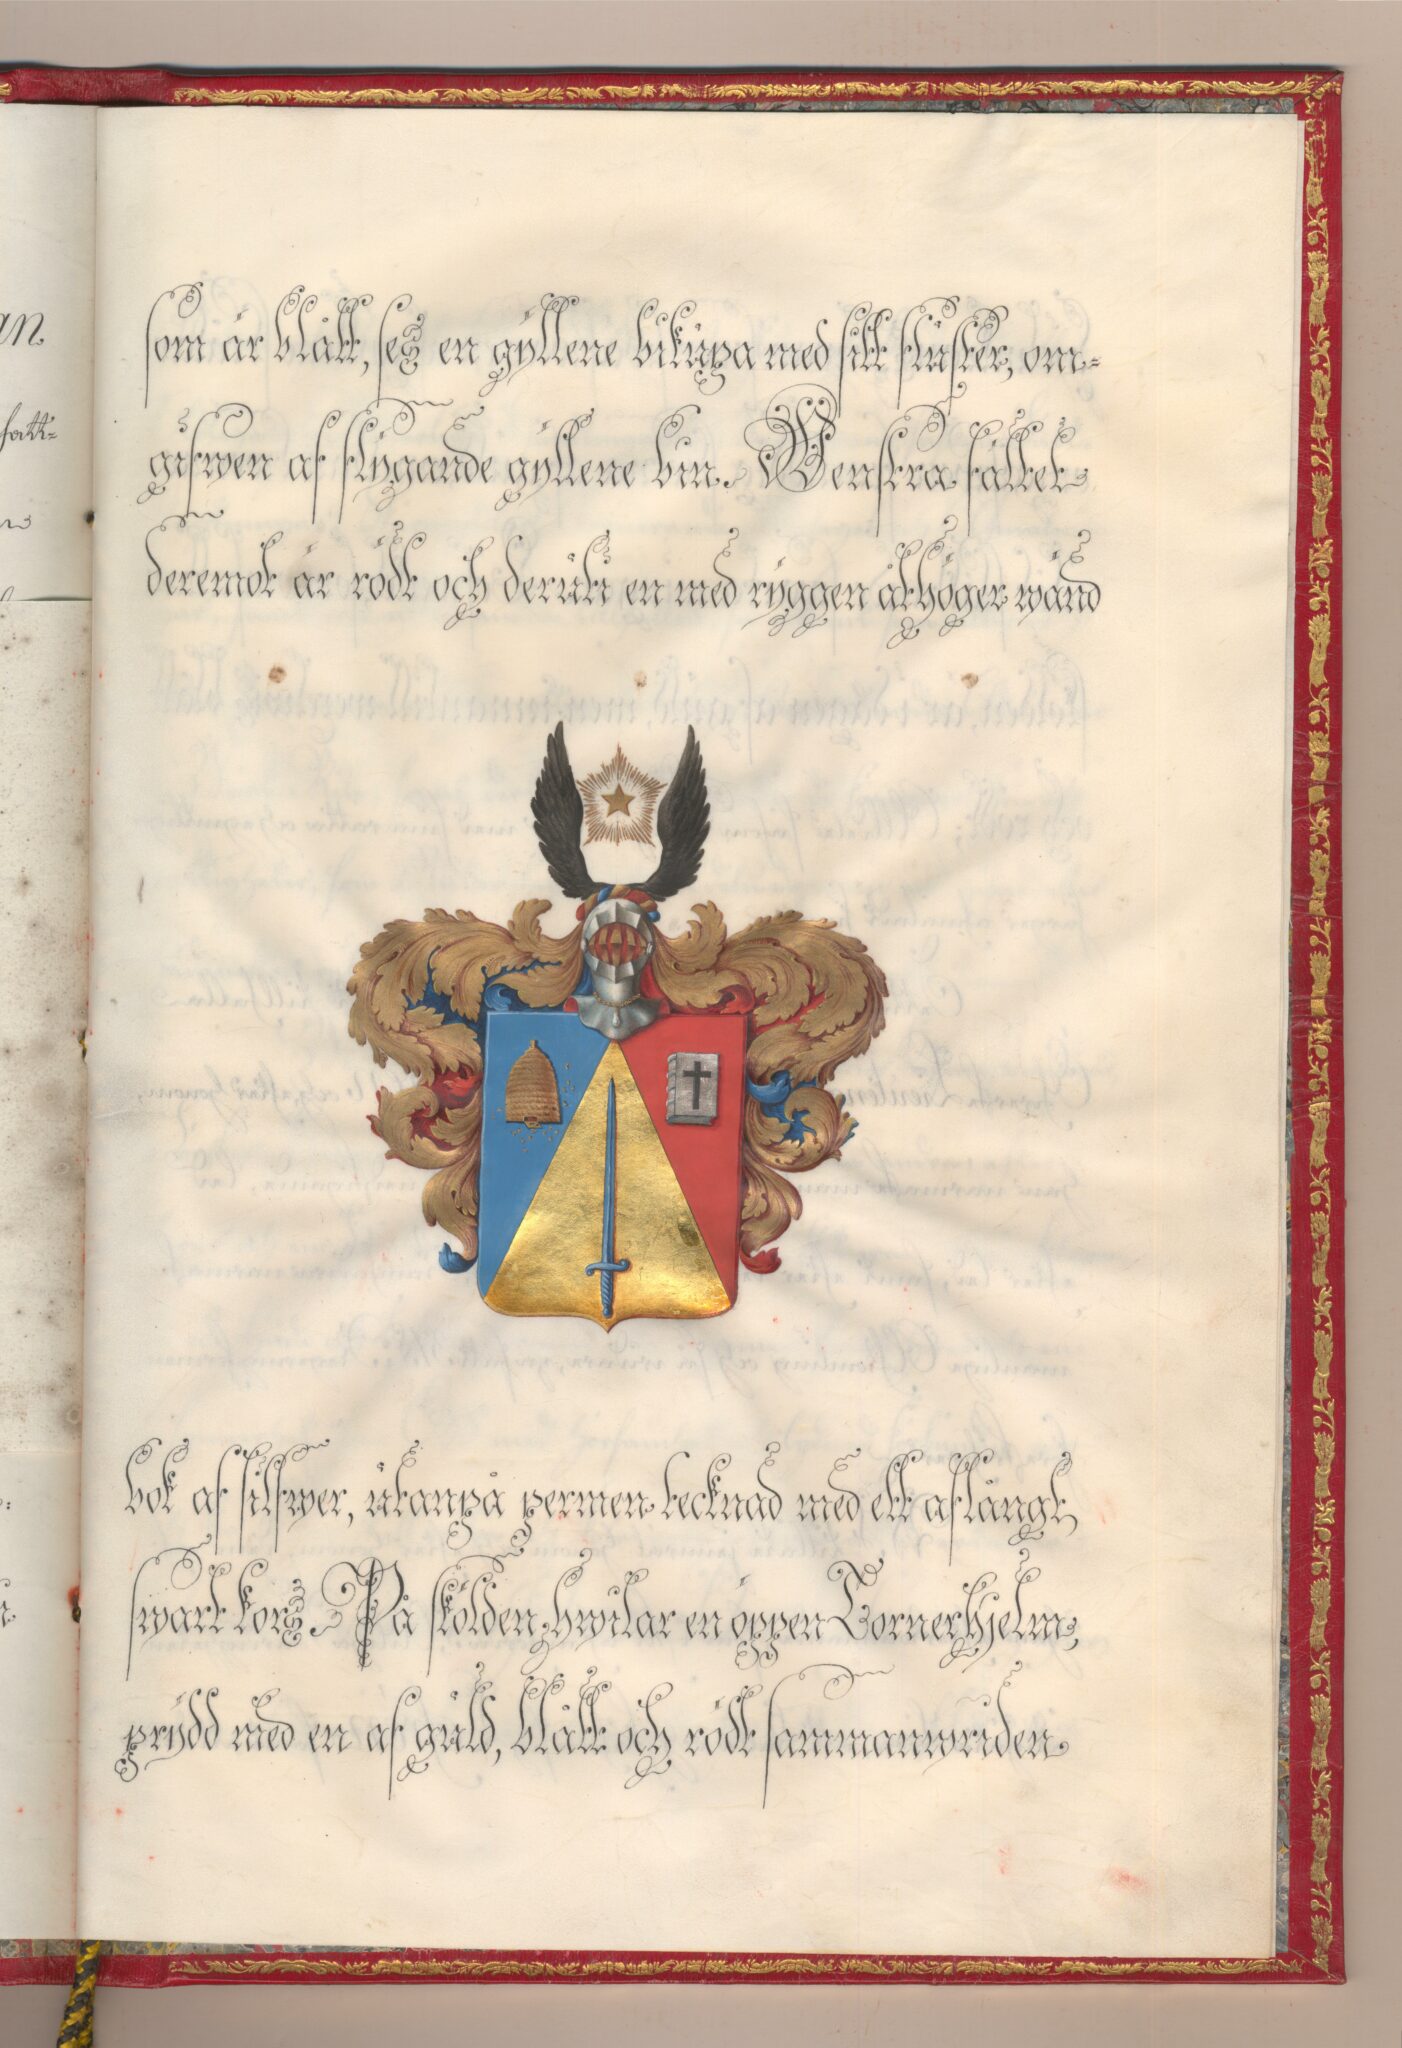 som är blått, ses en gyllene bikupa med sitt fluster, om-
gifwen af flygande gyllene bin. Wenstra fältet
deremot är rödt och deruti en med ryggen åt höger wänd
bok af silfwer, utanpå permen tecknad med ett aflångt,
swart kors. På skölden hwilar en öppen Tornerhjelm,
prydd med en af guld, blått och rödt sammanwriden